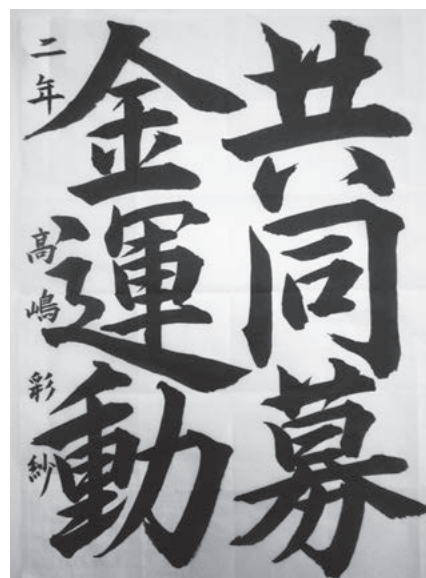 共同募
金運動
二年 高嶋彩紗